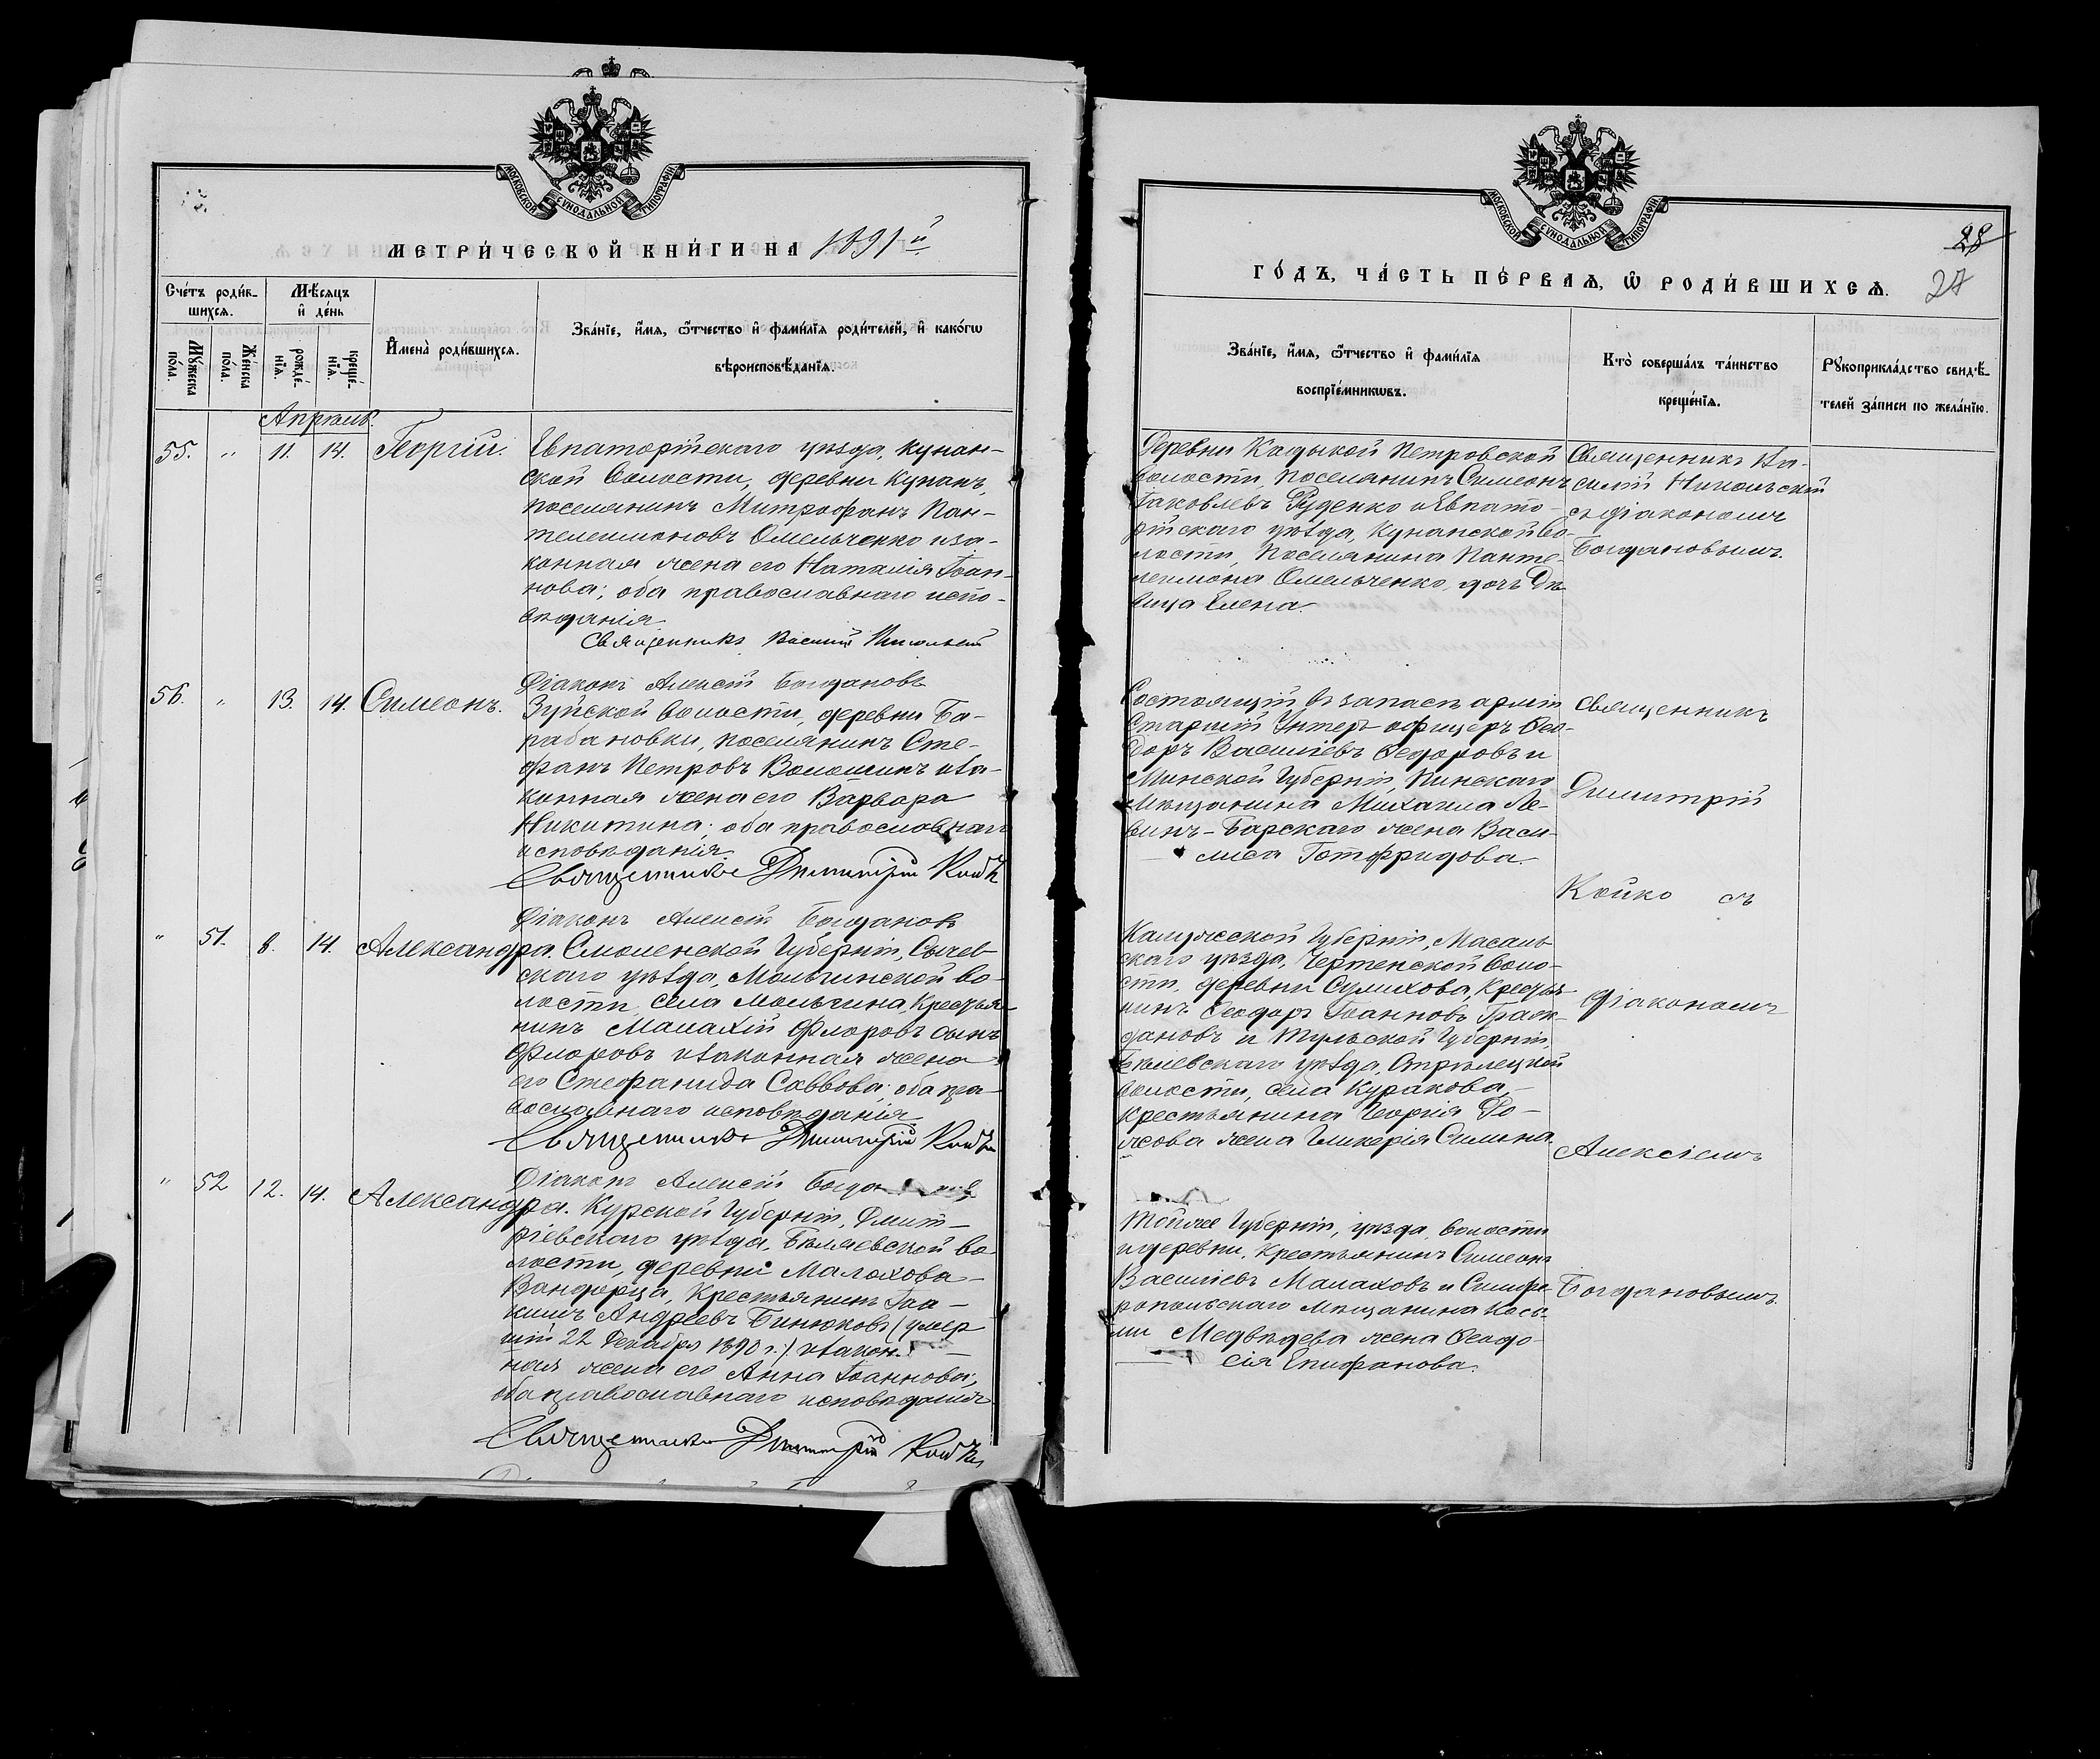 МОСКОВСКОЙ СУНОДАЛЬНОЙ ТИПОГРАФІИ
МЕТРИ́ЧЕСКОЙ КНИ́ГИ НА 1891й
Сче́тъ роди́вшихсѧ.
Мѣ́сяцъ и҆ де́нь
И҆мена̀ роди́вшихсѧ.
Зва́нїе, и҆́мѧ, ѻ҆́тчество и҆ фами́лїѧ роди́телей, и҆ како́гѡ
вѣроисповѣ́данїѧ.
Мꙋ́жеска по́ла.
Же́нска по́ла.
рожде́нїѧ.
креще́нїѧ.
Апрѣль.
55. " 11. 14. Георгій.
Евпаторійскаго уѣзда, Кунан-
ской волости, деревни Кунанъ,
поселянинъ Митрофанъ Пан-
телеимоновъ Омельченко и за-
конная жена его Наталія Іоан-
нова; оба православнаго испо-
вѣданія.
Священникъ Василій Никольскій
Діаконъ Алексій Богдановъ
56. " 13. 14. Симеонъ.
Зуйской волости, деревни Ба-
рабановки, поселянинъ Сте-
фанъ Петровъ Волошинъ и за-
конная жена его Варвара
Никитина; оба православнаго
исповѣданія.
Священникъ Димитрій Койко
Діаконъ Алексій Богдановъ
" 51. 8. 14. Александра.
Смоленской Губерніи, Сычев-
скаго уѣзда, Мольгинской во-
лости, села Мольгина, Крестья-
нинъ Малахій Флоровъ сынъ
Флоровъ и законная жена
его Стефанида Саввова; оба пра-
вославнаго исповѣданія.
Священникъ Димитрій Койко
Діаконъ Алексій Богдановъ
" 52 12. 14. Александра.
Курской Губерніи, Дмит-
ріевскаго уѣзда, Бѣляевской во-
лости, деревни Малахова-
Крестьянинъ Іоа-
кимъ Андреевъ Бинюковъ (умер
шій 22 Декабря 1890 г.) и закон-
ная жена его Анна Іоаннова;
оба православнаго исповѣданія
Священникъ Димитрій Койко
МОСКОВСКОЙ СУНОДАЛЬНОЙ ТИПОГРАФІИ
28
ГО́ДЪ, ЧА́СТЬ ПЕ́РВАѦ, Ѡ҆ РОДИ́ВШИХСѦ.
27
Зва́нїе, и҆́мѧ, ѻ҆́тчество и҆ фами́лїѧ
воспрїе́мникѡвъ.
Кто̀ соверша́лъ та́инство
креще́нїѧ.
Рꙋкоприкла́дство свидѣ́-
телей за́писи по жела́нїю.
Деревни Кадыкой Петровской
волости, поселянинъ Симеонъ
Іаковлевъ Руденко и Евпато-
рійскаго уѣзда, Кунанской во-
лости, поселянина Панте-
леимона Омельченко, дочь дѣ-
вица Елена.
Священникъ Ва-
силій Никольскій
съ діакономъ
Богдановымъ.
Состоящій въ запасѣ арміи
Старшій Унтеръ-офицеръ Ѳео-
доръ Васильевъ Ѳедоровъ и
Минской Губерніи, Пинскаго
мѣщанина Михаила Ле-
винъ-Барскаго жена Васи-
лиса Готфридова.
Священникъ
Димитрій
Койко съ
Калужской Губерніи, Масаль-
скаго уѣзда, Чертенской воло-
сти, деревни Сулихова, Крестья
нинъ Ѳеодоръ Іоанновъ Граж-
дановъ и Тульской Губерніи,
Бѣлевскаго уѣзда, Стрѣлецкой
волости, села Куракова,
крестьянина Георгія Ро-
жова жена Гликерія Силина.
діакономъ
Алексіемъ
Той же Губерніи, уѣзда, волости
и деревни, Крестьянинъ Симеонъ
Васильевъ Малаховъ и Симфе-
ропольскаго мѣщанина Кось-
мы Медвѣдева жена Ѳеодо-
сія Епифанова.
Богдановымъ.